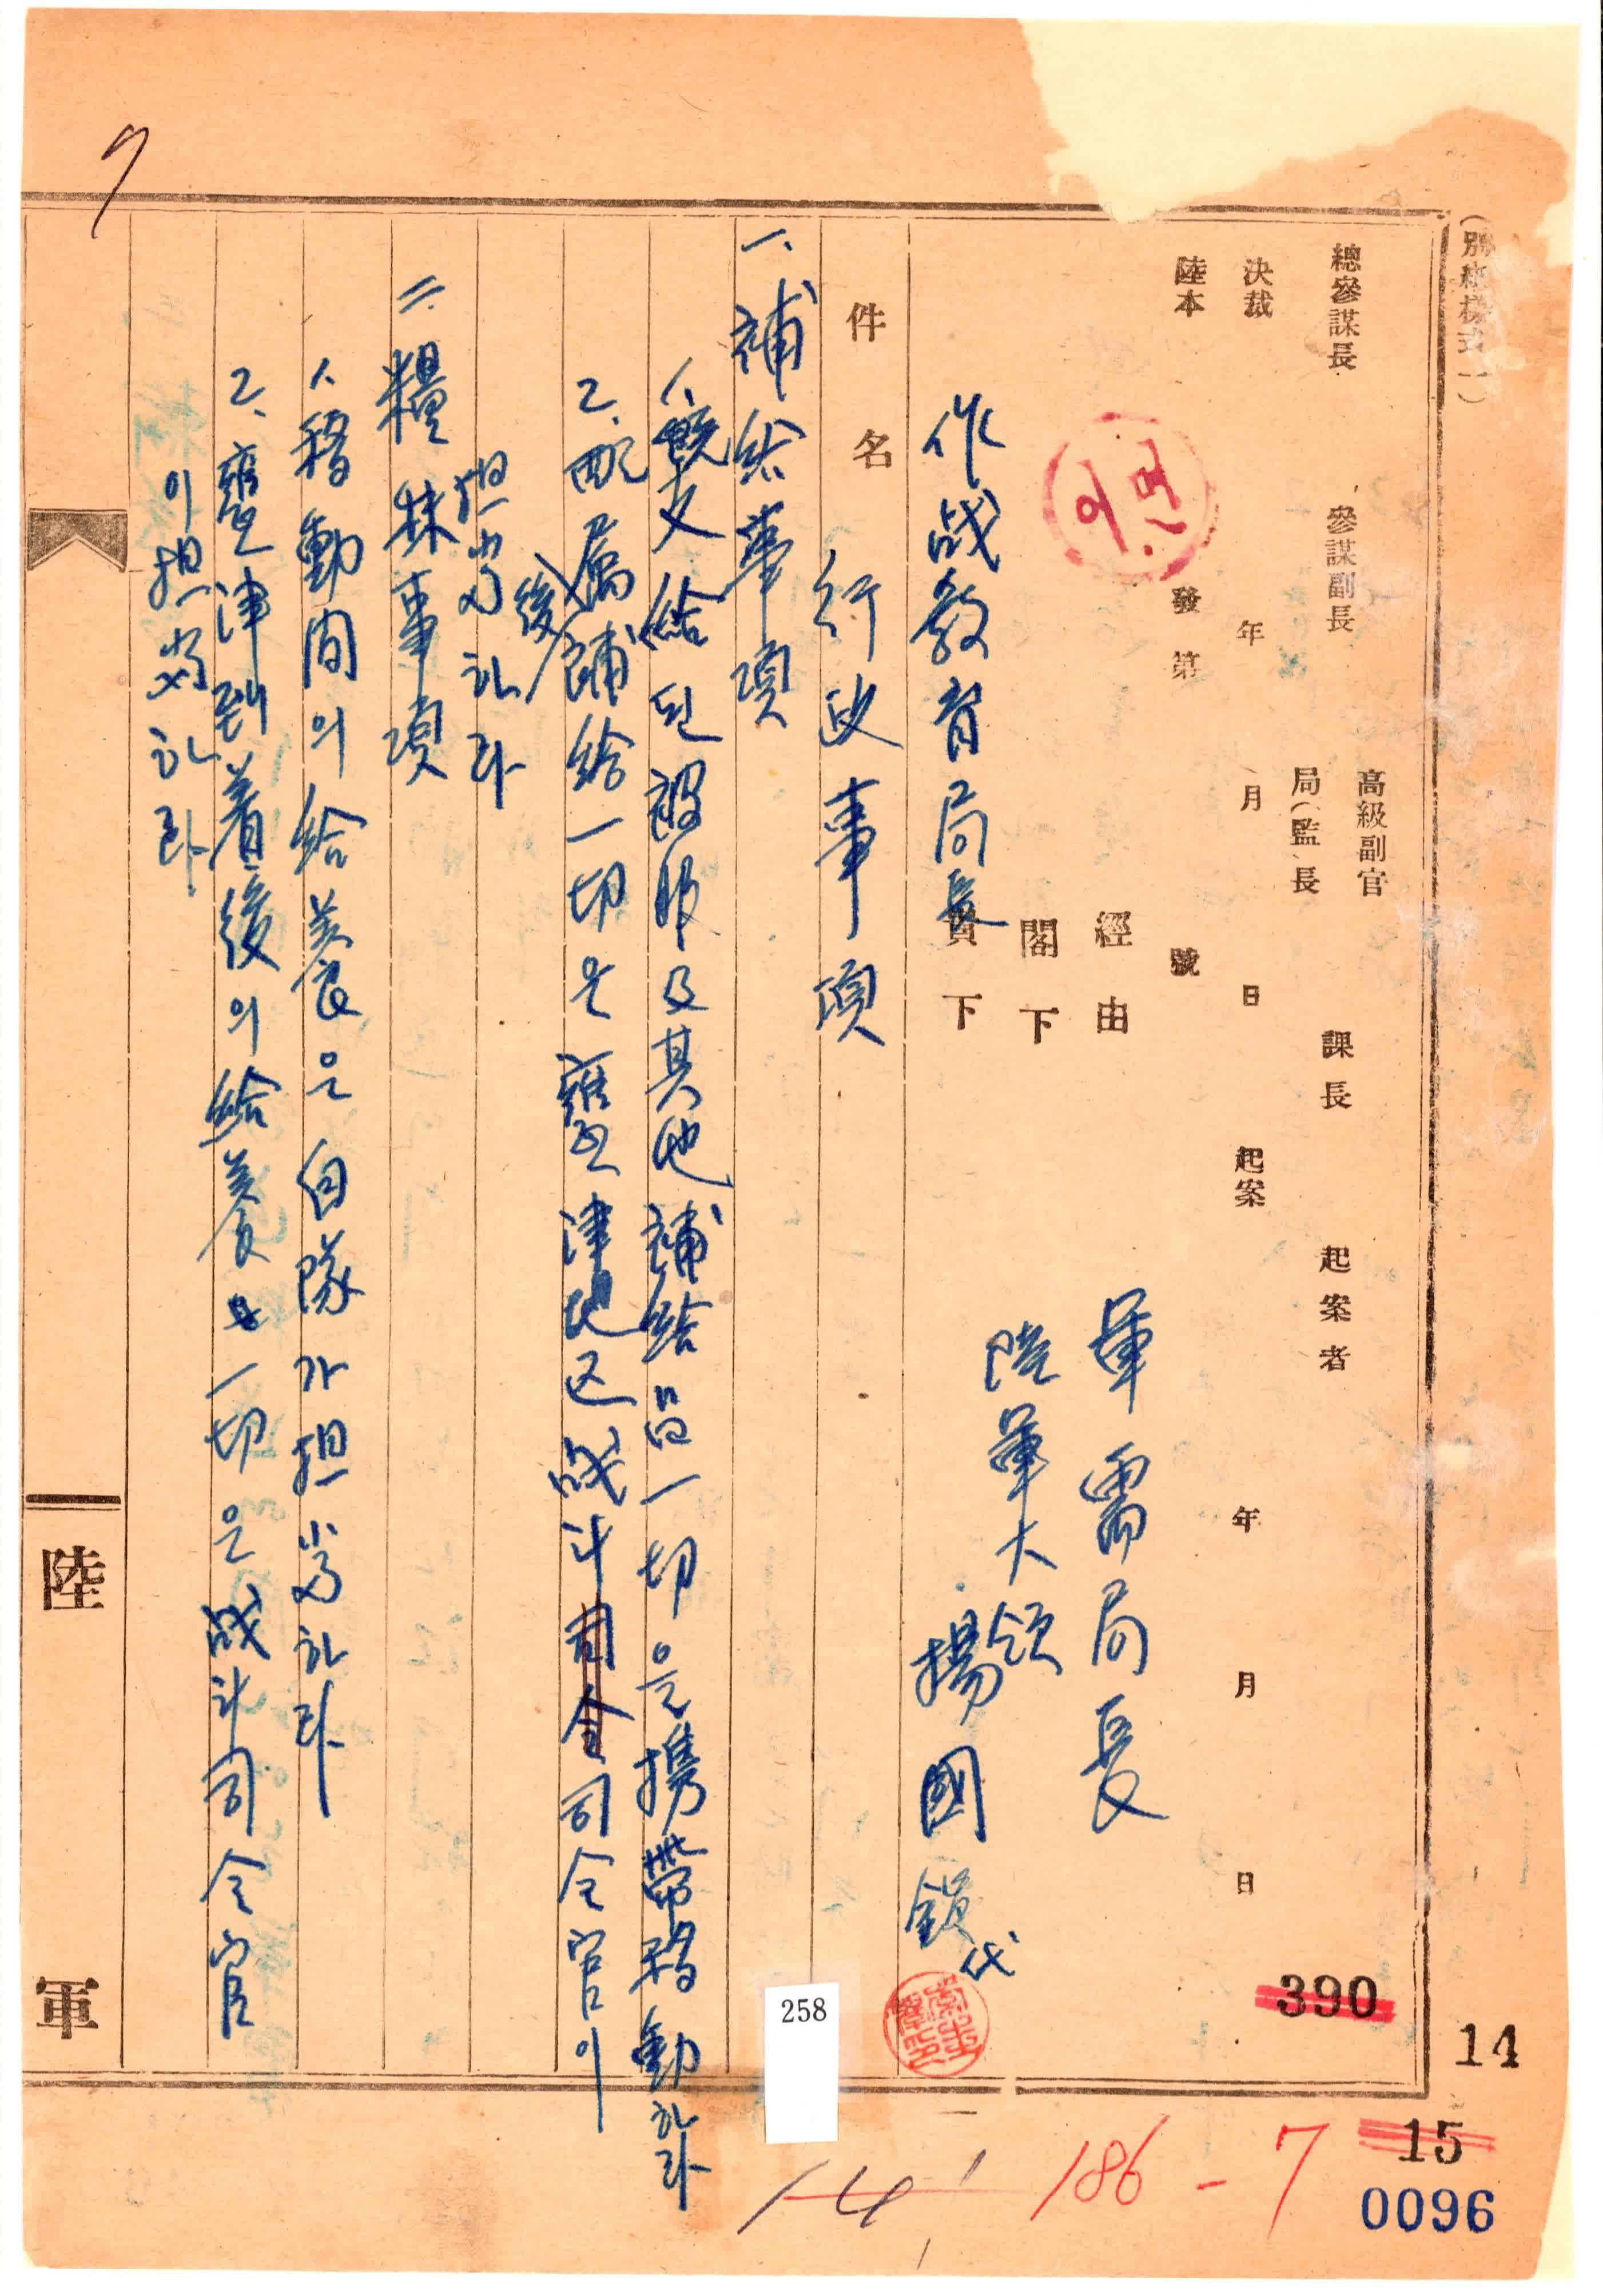 (別紙様式一)
總參謀長 參謀副長 高級副官 課長 起案者
局(監)長
決裁 年 月 日 起案 年 月 日
陸本 發第 號
經由
閣下
作战教育局長 貴下
軍需局長
陸軍大領
揚國鎭 代
件名 行政事項
一. 補給事項
1. 既支給된 被服及其他補給品一切을 携帶移動하라
2. 配属後補給一切은 甕津地区战斗司令司令官이
担当하라
二. 糧秣事項
1. 移動間의 給養은 自隊가 担当하라
2. 甕津到着後의 給養 一切은 战斗司令官
이 担当하라
陸軍
7
258
390
14
15
0096
14
186-7